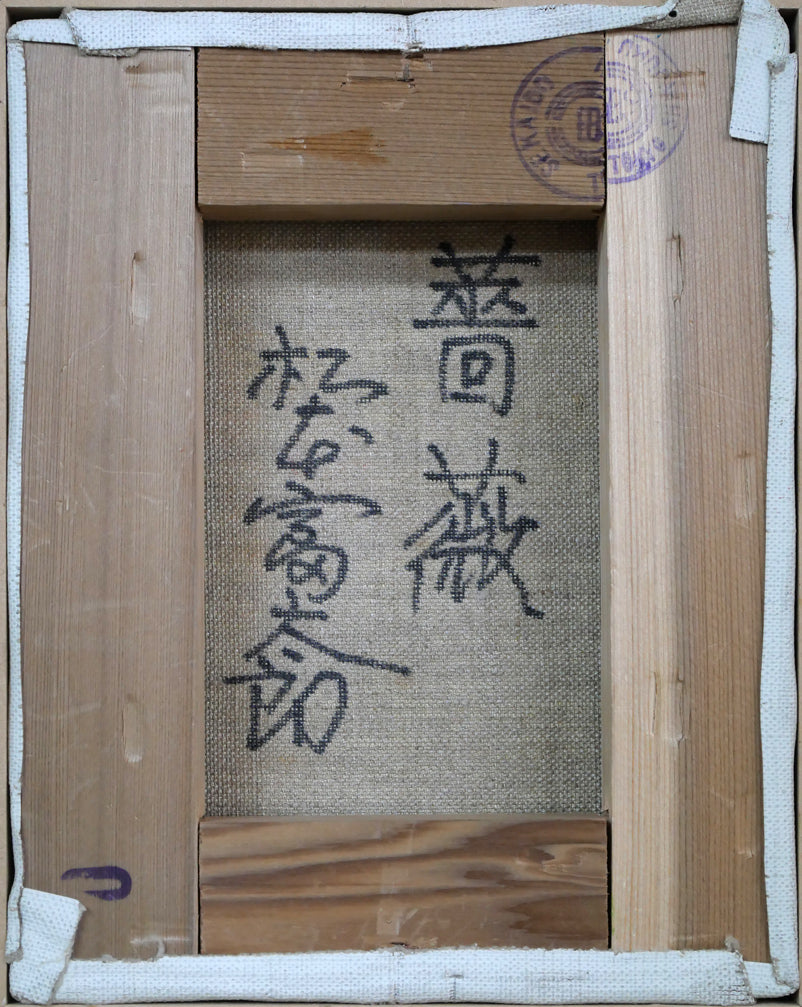 薔薇
松本富太郎
SEKAIDO
TOKYO